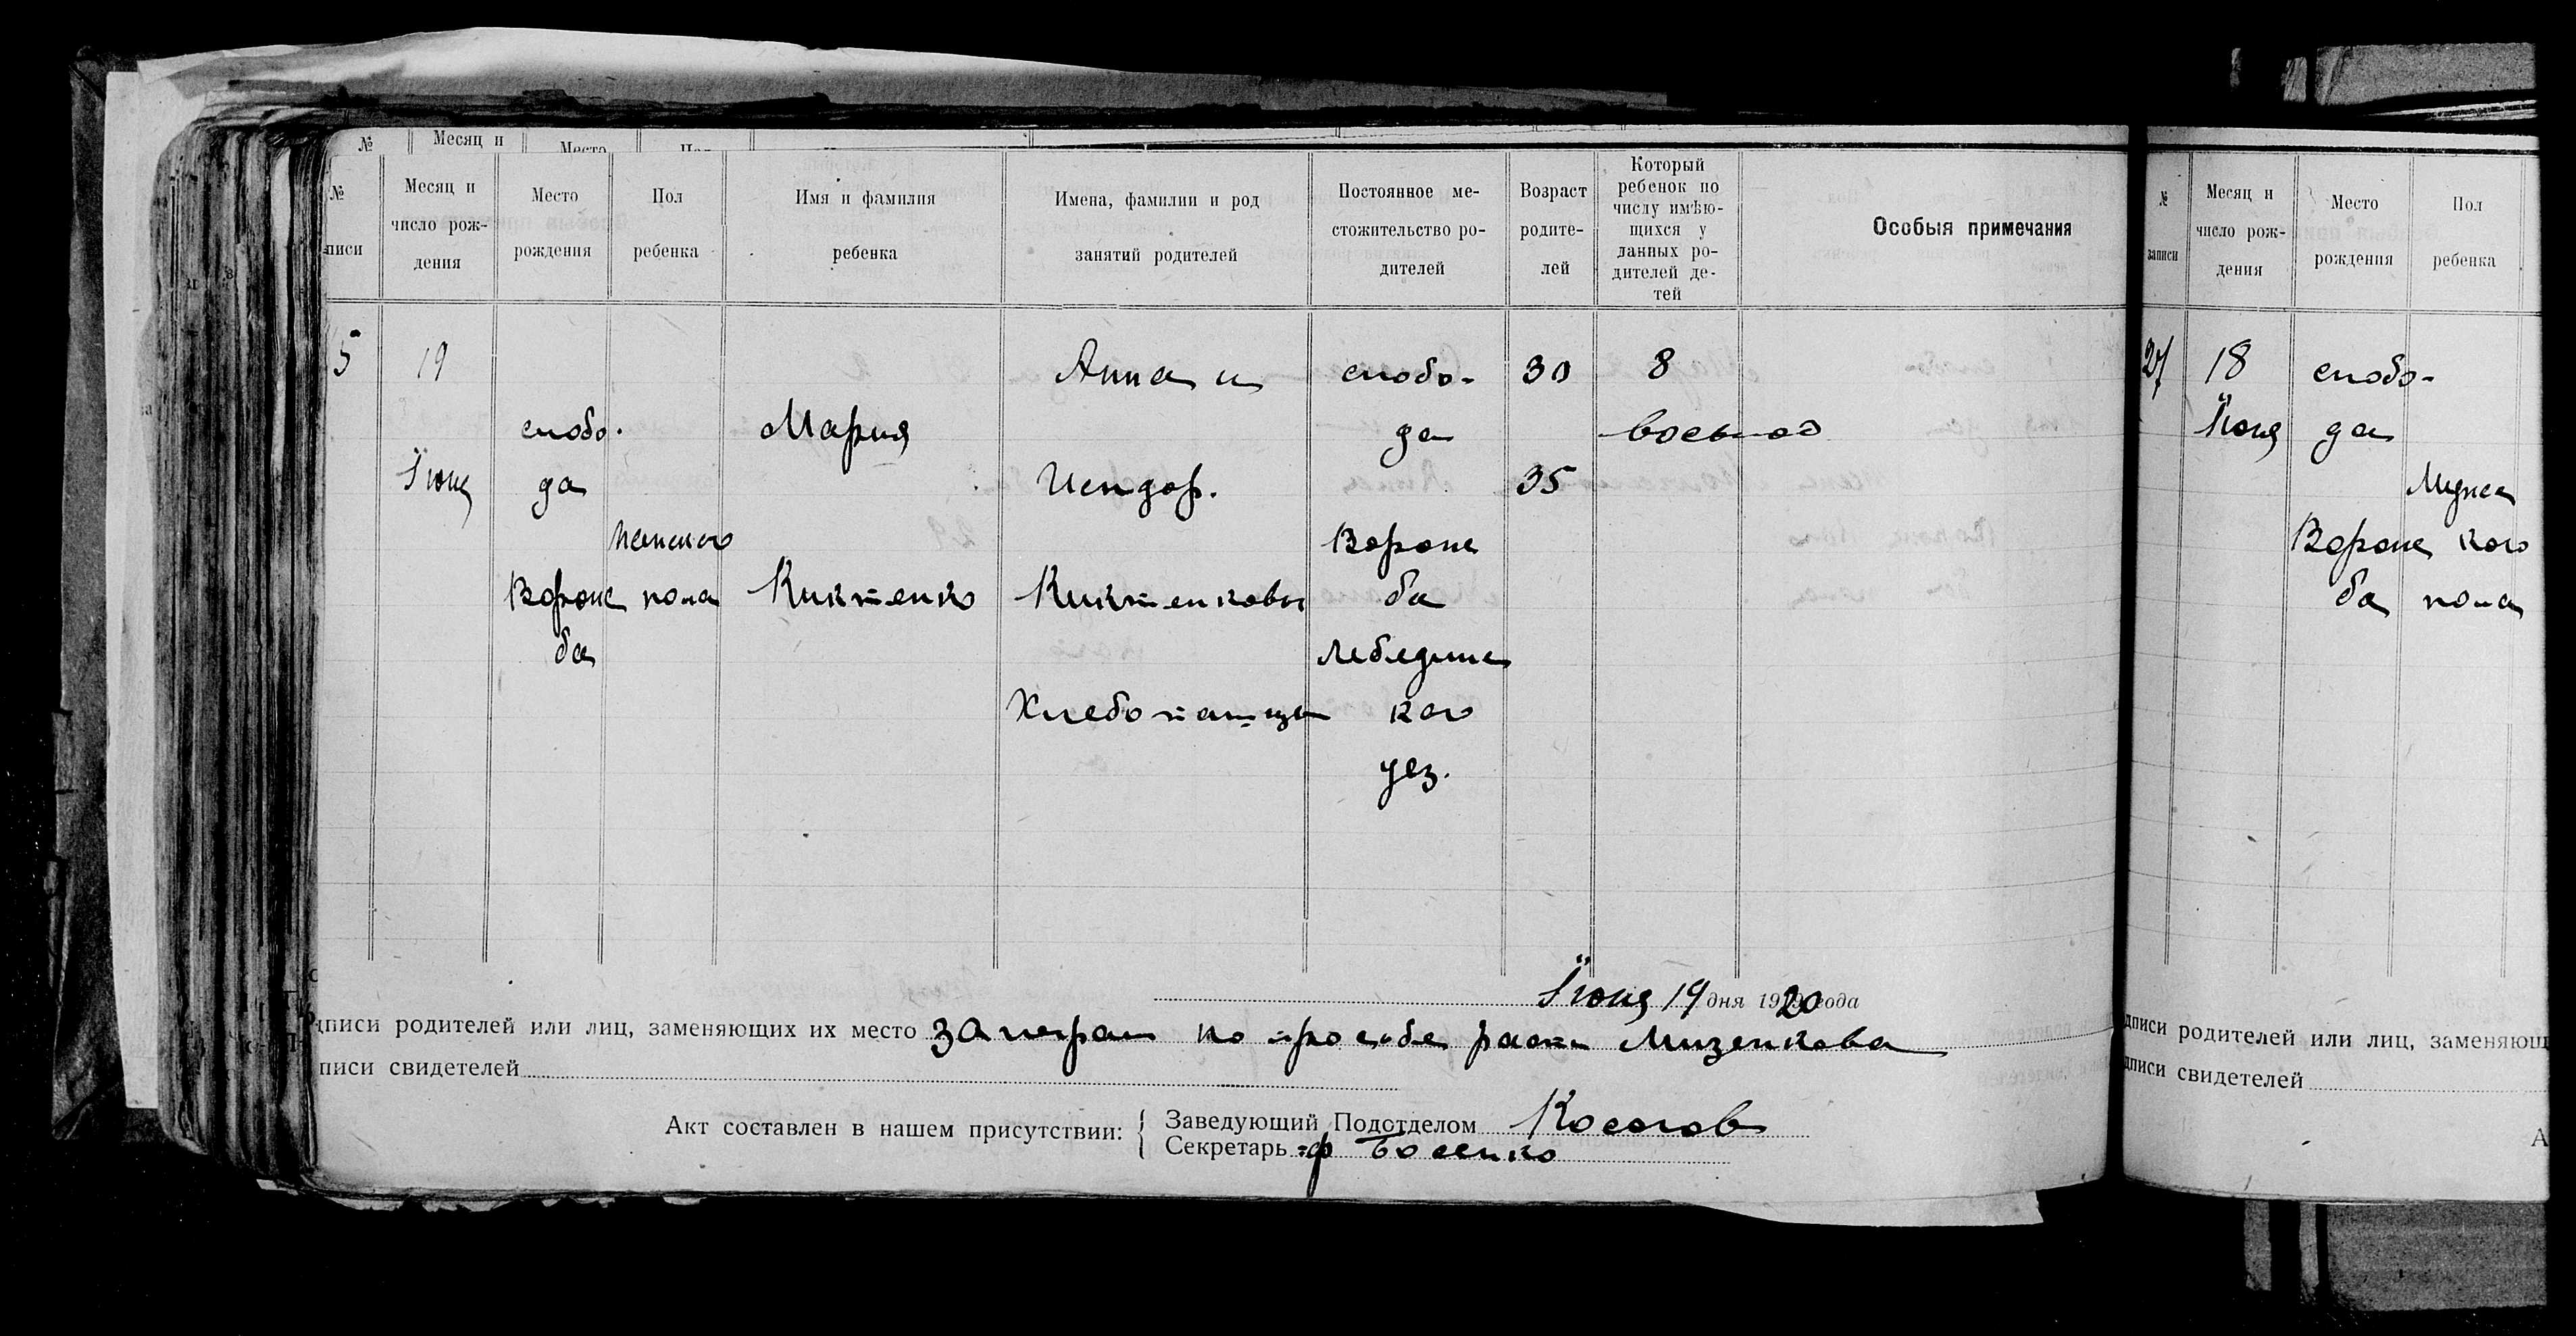 № Месяц и Место
№ писи
Месяц и число рож-дения
Место рождения
Пол ребенка
Имя и фамилия ребенка
Имена, фамилии и род занятий родителей
Постоянное ме-стожительство ро-дителей
Возраст родите-лей
Который ребенок по числу имѣю-щихся у данных ро-дителей де-тей
Особыя примечания
5
19
Iюня
слобо.
да
Вороне
ба
женского
пола
Мария
Киктенко
Анна и
Исидор.
Киктенковы
Хлебопашцы
слобо-
да
Вороне
ба
Лебединс
кого
уез.
30
35
8
восьмой
Iюня 19 дня 1920 года
дписи родителей или лиц, заменяющих их место за неграм по просьбе расп Мизенкова
писи свидетелей
Акт составлен в нашем присутствии:
Заведующий Подотделом Косогов
Секретарь ф Босенко
№ записи
Месяц и число рож-дения
Место рождения
Пол ребенка
27
18
Июня
слобо-
да
Вороне
ба
Мужс
кого
пола
дписи родителей или лиц, заменяющ
дписи свидетелей
А